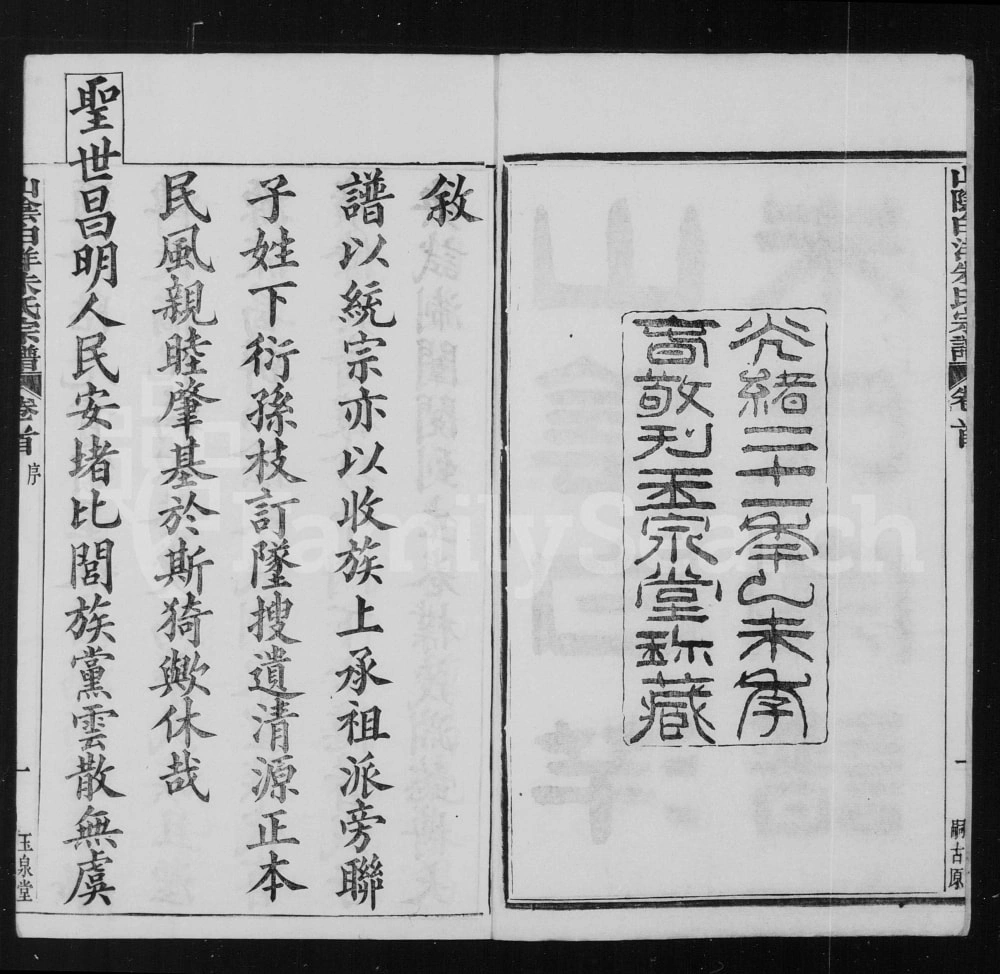 山陰白洋朱氏宗譜 卷首 一 嗣古原
光緒二十一年乙未季
旾敬刊玉泉堂珍藏
敘
譜以統宗亦以收族上承祖派旁聯
子姓下衍孫枝訂墜搜遺清源正本
民風親睦肇基於斯猗歟休哉
聖世昌明人民安堵比閭族黨雲散無虞
山陰白洋朱氏宗譜 卷首 序 一 玉泉堂
FamilySearch